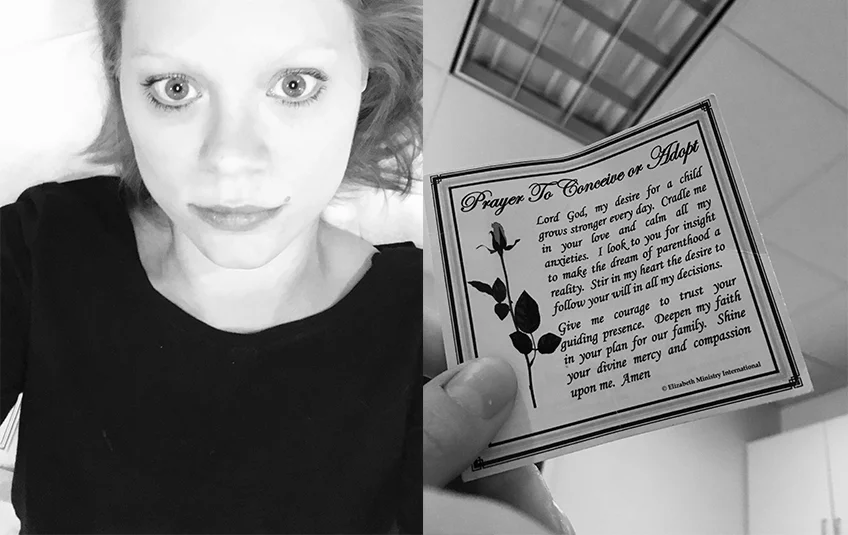 Prayer To Conceive or Adopt
Lord God, my desire for a child
grows stronger every day. Cradle me
in your love and calm all my
anxieties. I look to you for insight
to make the dream of parenthood a
reality. Stir in my heart the desire to
follow your will in all my decisions.
Give me courage to trust your
guiding presence. Deepen my faith
in your plan for our family. Shine
your divine mercy and compassion
upon me. Amen
© Elizabeth Ministry International